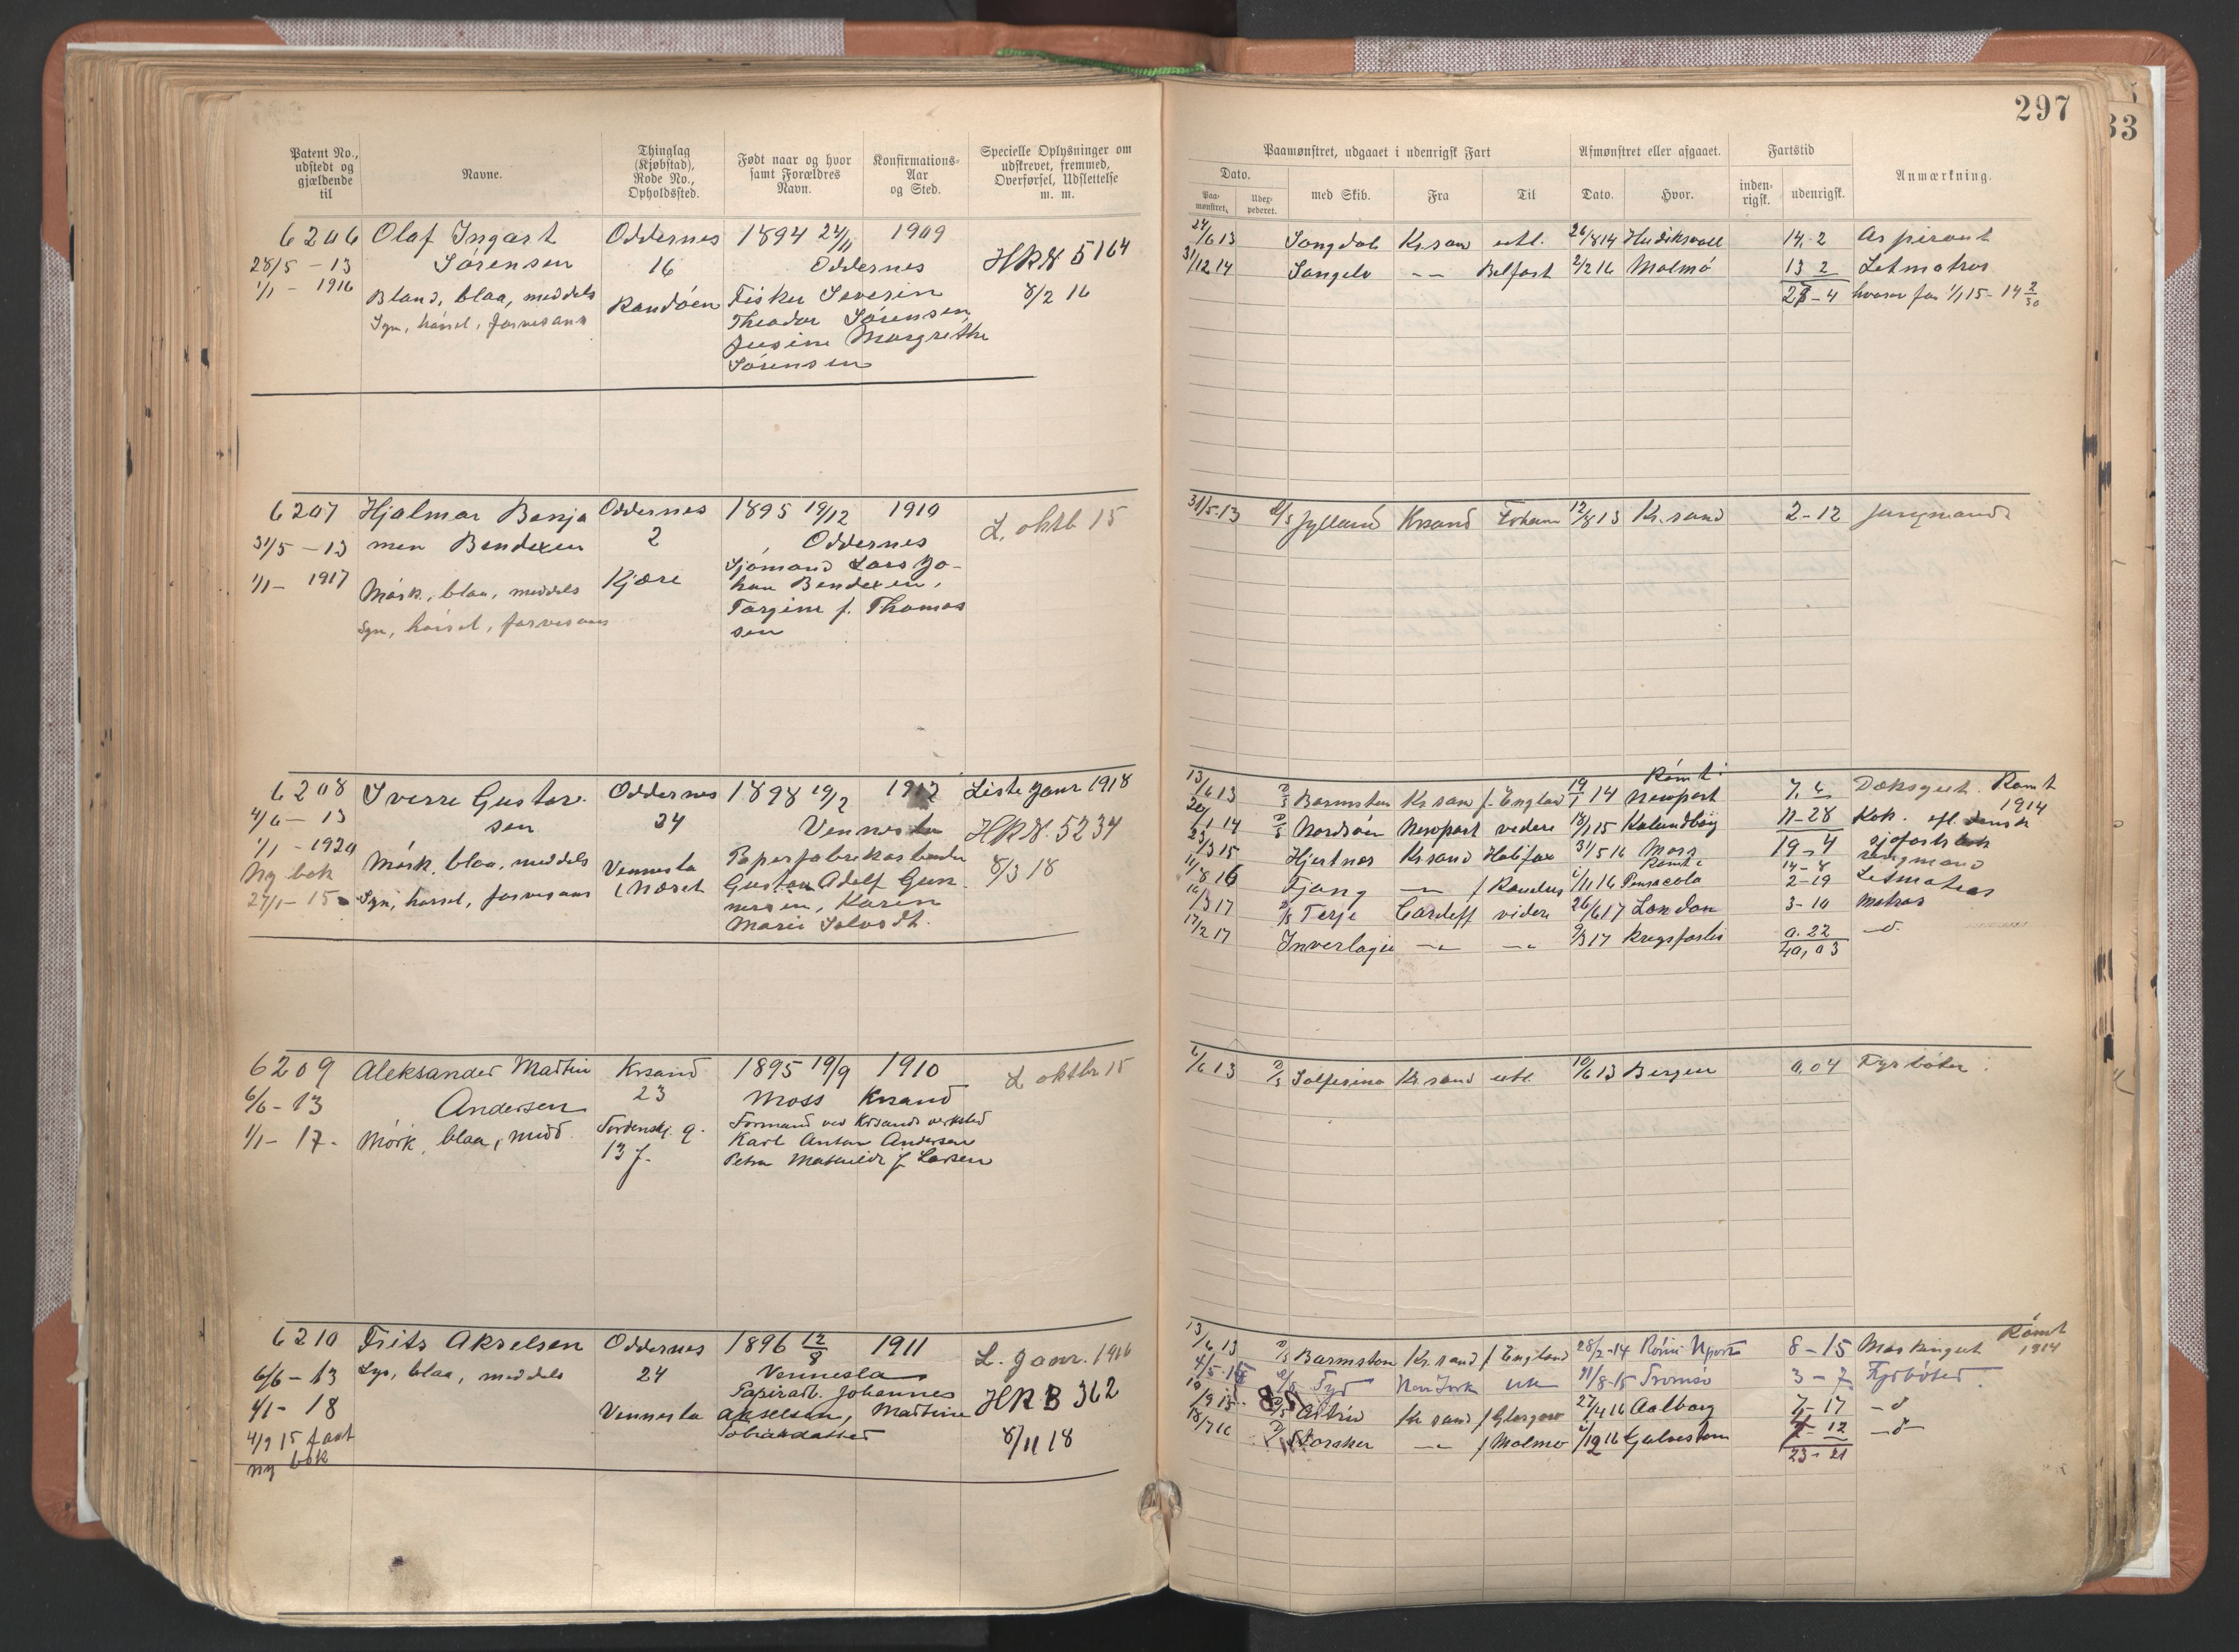 297
33
Patent No., udstedt og gjældende til
Navne.
Thinglag (Kjøbstad), Rode No., Opholdssted.
Født naar og hvor samt Forældres Navn.
Konfirmations-Aar og Sted.
Specielle Oplysninger om udskrevet, fremmed, Overførsel, Udslettelse m. m.
Paamønstret, udgaaet i udenrigsk Fart
Dato.
Paamønstret.
med Skib.
Fra
Til
Afmønstret eller afgaaet.
Dato.
Hvor.
Fartstid
indenrigsk.
udenrigsk.
Anmærkning.
6206 Olaf Ingart Oddernes 1894 24/11 1909
28/5 - 13 Sørensen 16 Oddernes HRN 5164
1/1 - 1916 Blond, blaa, middels Randøen Fisker Severin 8/2 16
Syn, hørsel, farvesans Theodor Sørensen,
Margrethe
Sørensen
24/6 13 Songdal Kr.sand utl. 26/8 14 Hudiksvall 14-2 Aspirant
31/12 14 Songelv -"- Belfast 2/2 16 Malmø 13 2 Letmatros
27-4 hvorav før 1/1 15 - 14 2/30
6207 Hjalmar Benja Oddernes 1895 19/12 1910 L. oktb 15
31/5 - 13 men Bendixen 2 Oddernes
1/1 - 1917 Mørk, blaa, middels Kjære Sjømand Lars Jo-
Syn, hørsel, farvesans han Bendixen,
Torgine f. Thomas
sen
31/5-13 D/S Jylland Krsand 12/8 13 Kr.sand 2-12 Jungmand
6208 Sverre Gustav Oddernes 1898 19/2 1912 Liste janr 1918
4/6 - 13 sen 24 Vennesla HRN. 5234
1/1 - 1920 Mørk, blaa, middels Vennesla Papirfabrikarbeider 8/3 18
Ny bok Gustav Adolf Gun
27/1 - 15 Syn, hørsel, farvesans nersen, Karin
Marie
Rømt
13/6 13 D/S Barmston Kr.sand f. England 19/1 14 Newport 7, 6 Dæksgut. Rømt 1914
20/1 14 D/S Nordsøen Newport videre 18/1 15 Kalundborg 11-28 Kok. efl. dansk
23/3 15 Hjertnes Krsand Halifax 31/5 16 Moss 19-4
Rømt 14-8
11/8 16 Fjong -"- f Randers 1/11 16 Pensacola 2-19 Letmatros
16/3 17 D/S Terje Cardiff videre 26/6 17 London 3-10 Matros
17/2 17 Inverlogie -"- -"- 9/3 17 Krigsforlis 0.22 -d-
40,03
6209 Aleksander Martin Krsand 1895 19/9 1910 L oktbr 15
6/6 - 13 Andersen 23 Moss Krsand
1/1 - 17. Mørk, blaa, midd. Tordenskj. g. Formand ved Krsands verksted
13 f. Karl Anton Andersen
Petra Mathilde f. Larsen
6/6 13 D/S Solferino Kr.sand utl. 10/6 13 Bergen 0.04 Fyrbøter
6210 Frits Akselsen Oddernes 1896 12/8 1911 L. janr. 1916
6/6 - 13 Lys, blaa, middels 24 Vennesla
1/1 - 18 Papirarb. Johannes HRB 362
Vennesla Akselsen, Martine
4/9 15 faat Tobiasdatter 8/11 18
ny bok
13/6 13 D/S Barmston Kr.sand f England 28/2-14 Rømt Nport 8-15 Maskingut Rømt 1914
4/5-15 D/S Tyr New York utl 11/8-15 Tromsø 3-7 Fyrbøter.
10/9 15 D/S Astrid Kr sand f Glasgow 27/4 16 Aalborg 7-17 -d-
18/7 16 D/S Storaker -"- f Malmø 1/12 16 Galveston 4-12 -d-
23-21